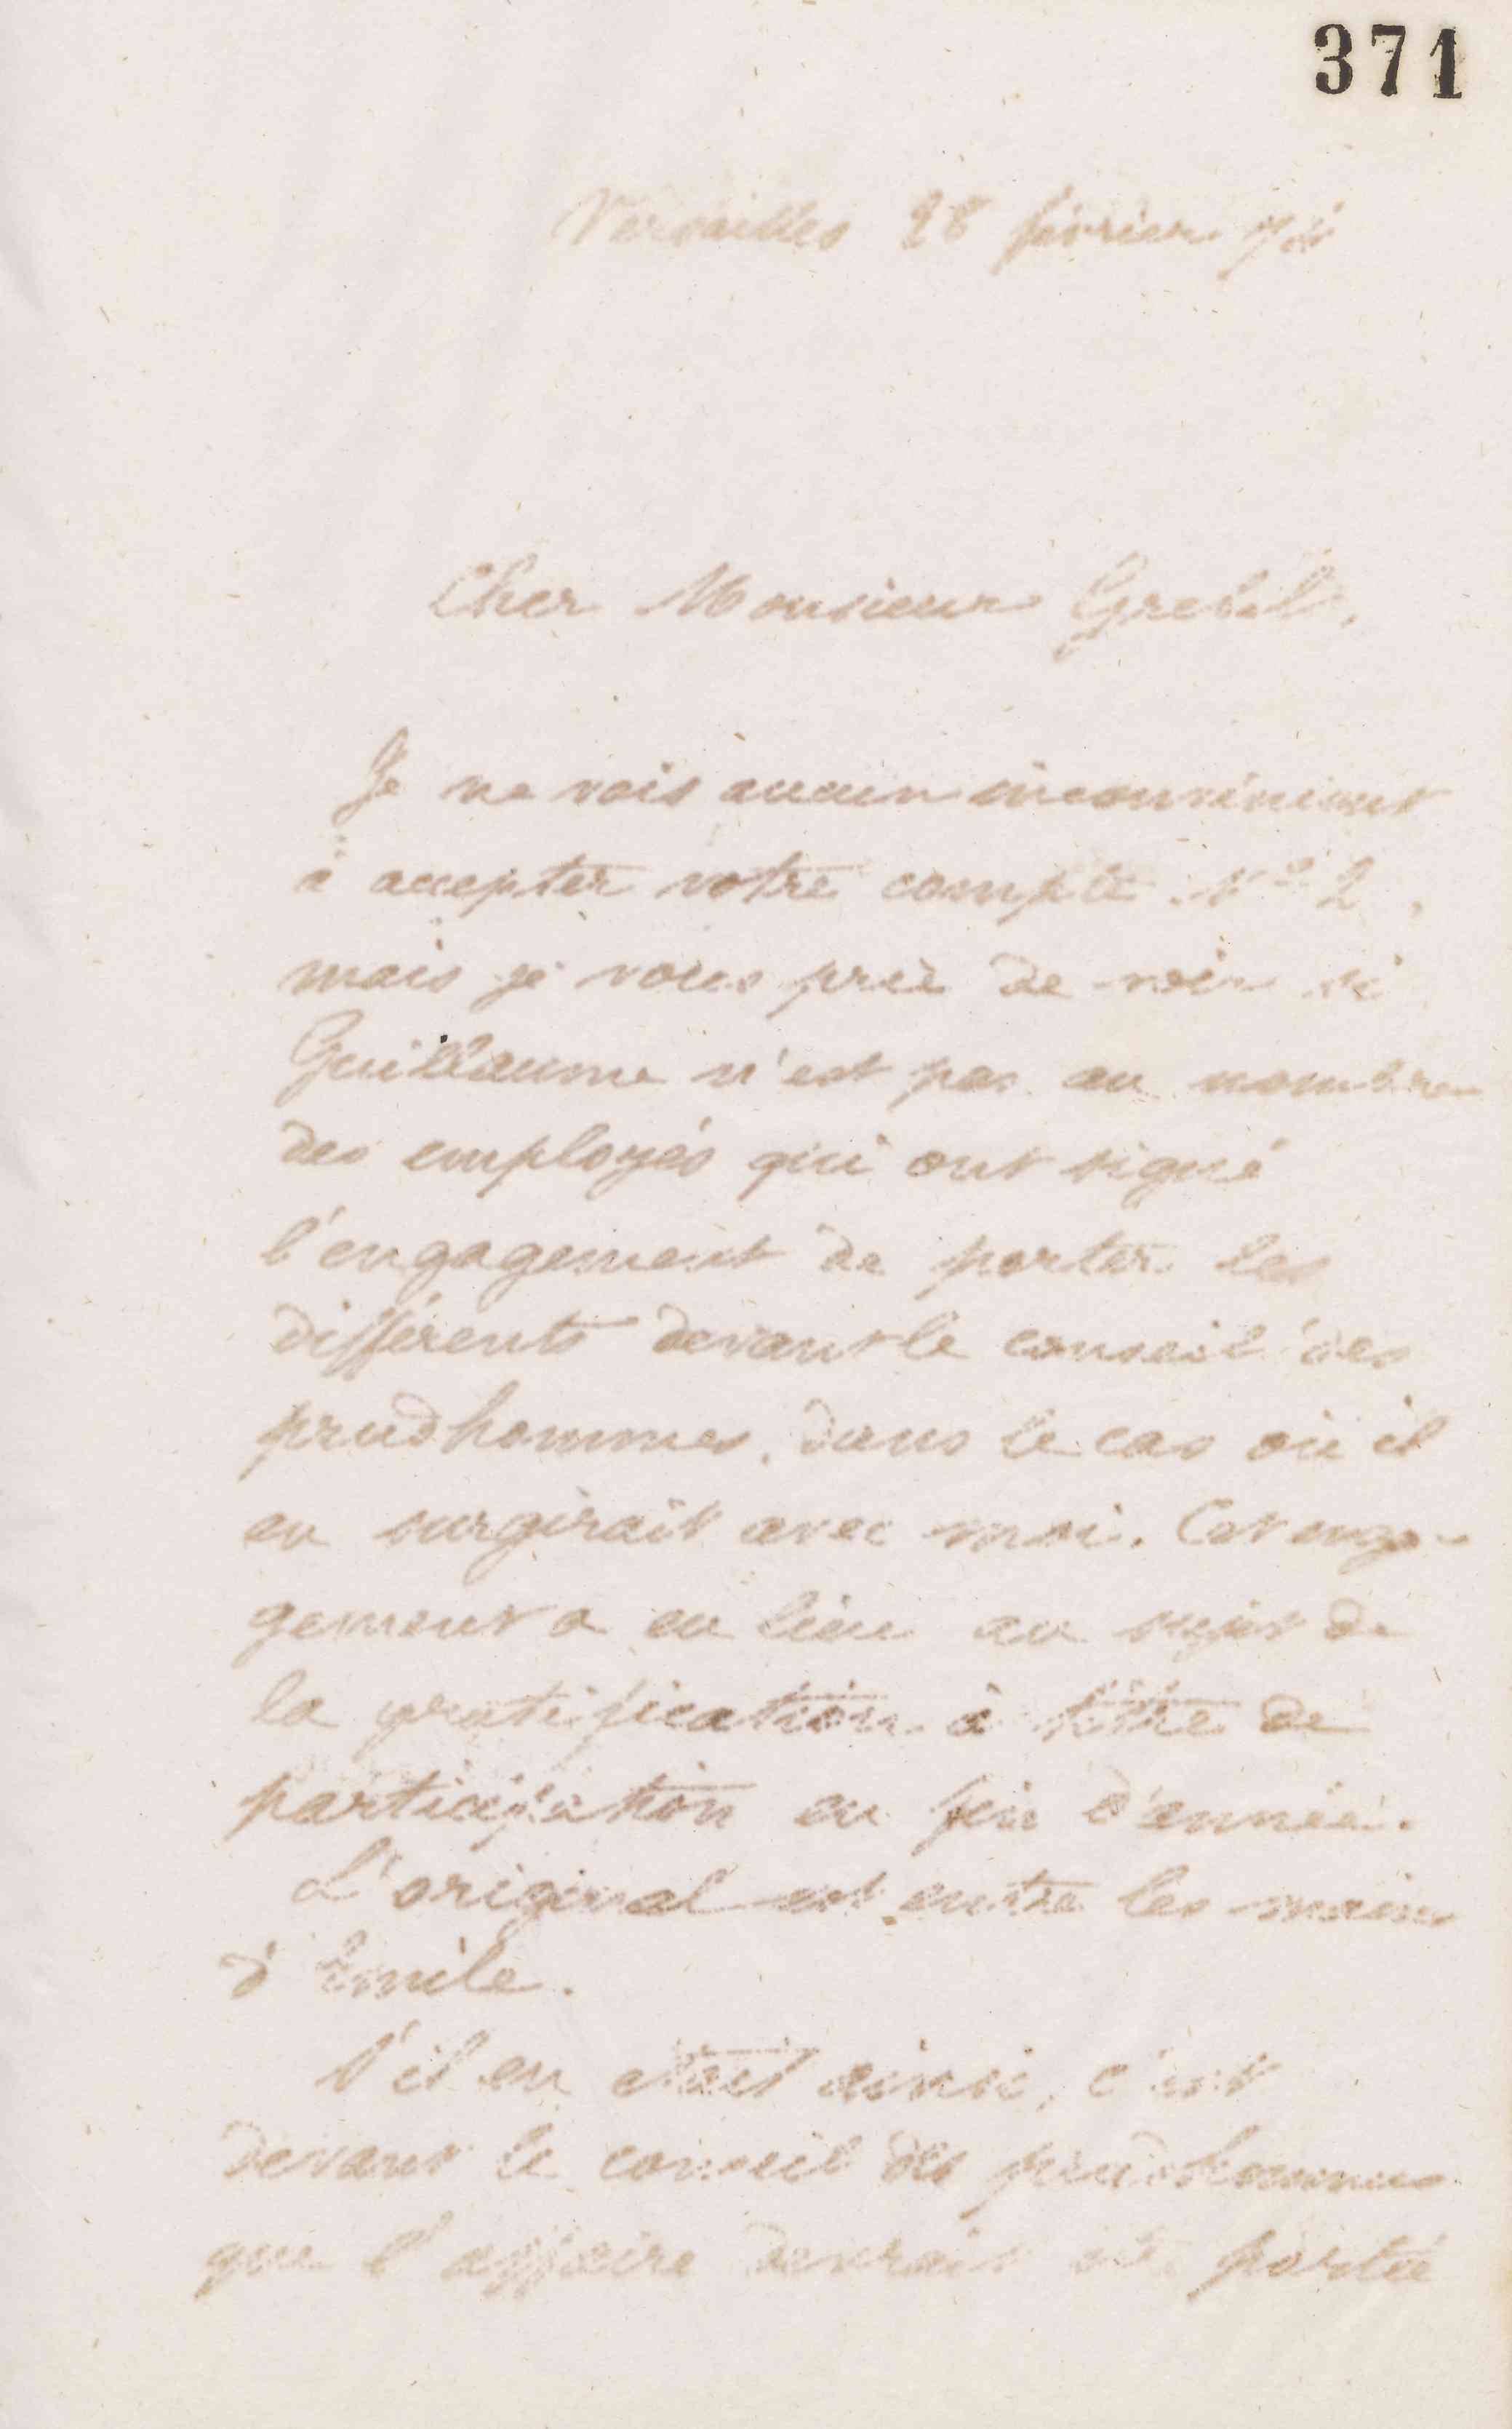 371
Versailles 28 février
Cher Monsieur Grebel,
Je ne vois aucun inconvénient
à accepter votre compte N° 2,
mais je vous prie de voir si
Guillaume n'est pas au nombre
des employés qui ont signé
l'engagement de porter les
différents devant le conseil des
prudhommes, dans le cas où il
en surgirait avec moi. Cet enga-
gement a eu lieu au sujet de
la gratification à titre de
participation en fin d'année.
L'original est entre les mains
d'Emile.
S'il en était ainsi, c'est
devant le conseil des prudhommes
que l'affaire devrait être portée